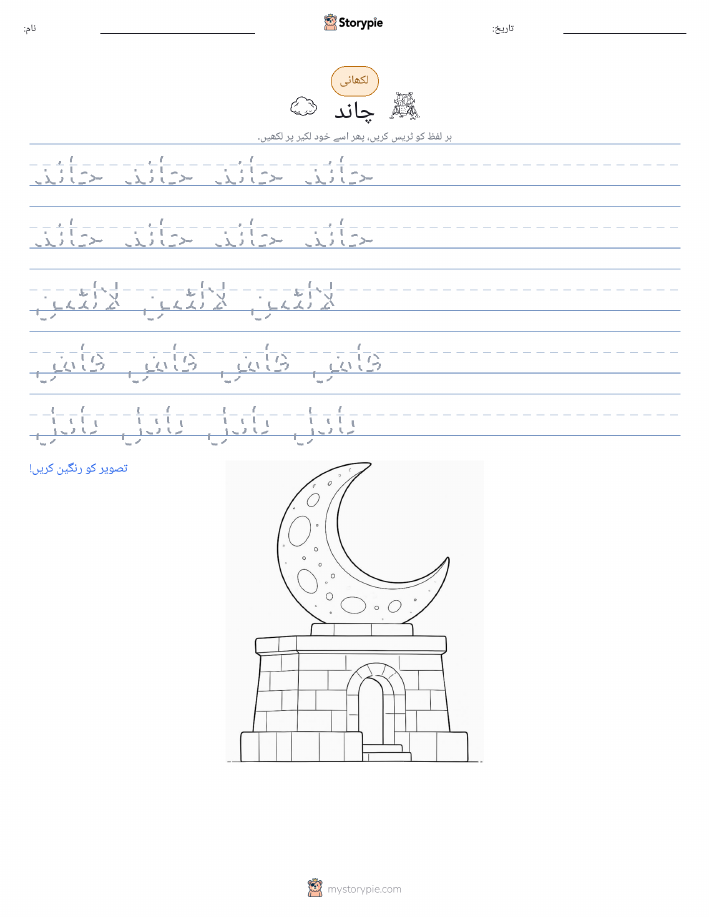 نام:
Storypie
تاریخ:
لکھائی
چاند
ہر لفظ کو ٹریس کریں، پھر اسے خود لکیر پر لکھیں۔
چاند چاند چاند چاند
چاند چاند چاند چاند
لالٹین لالٹین لالٹین
بادل بادل بادل بادل
تصویر کو رنگین کریں!
mystorypie.com